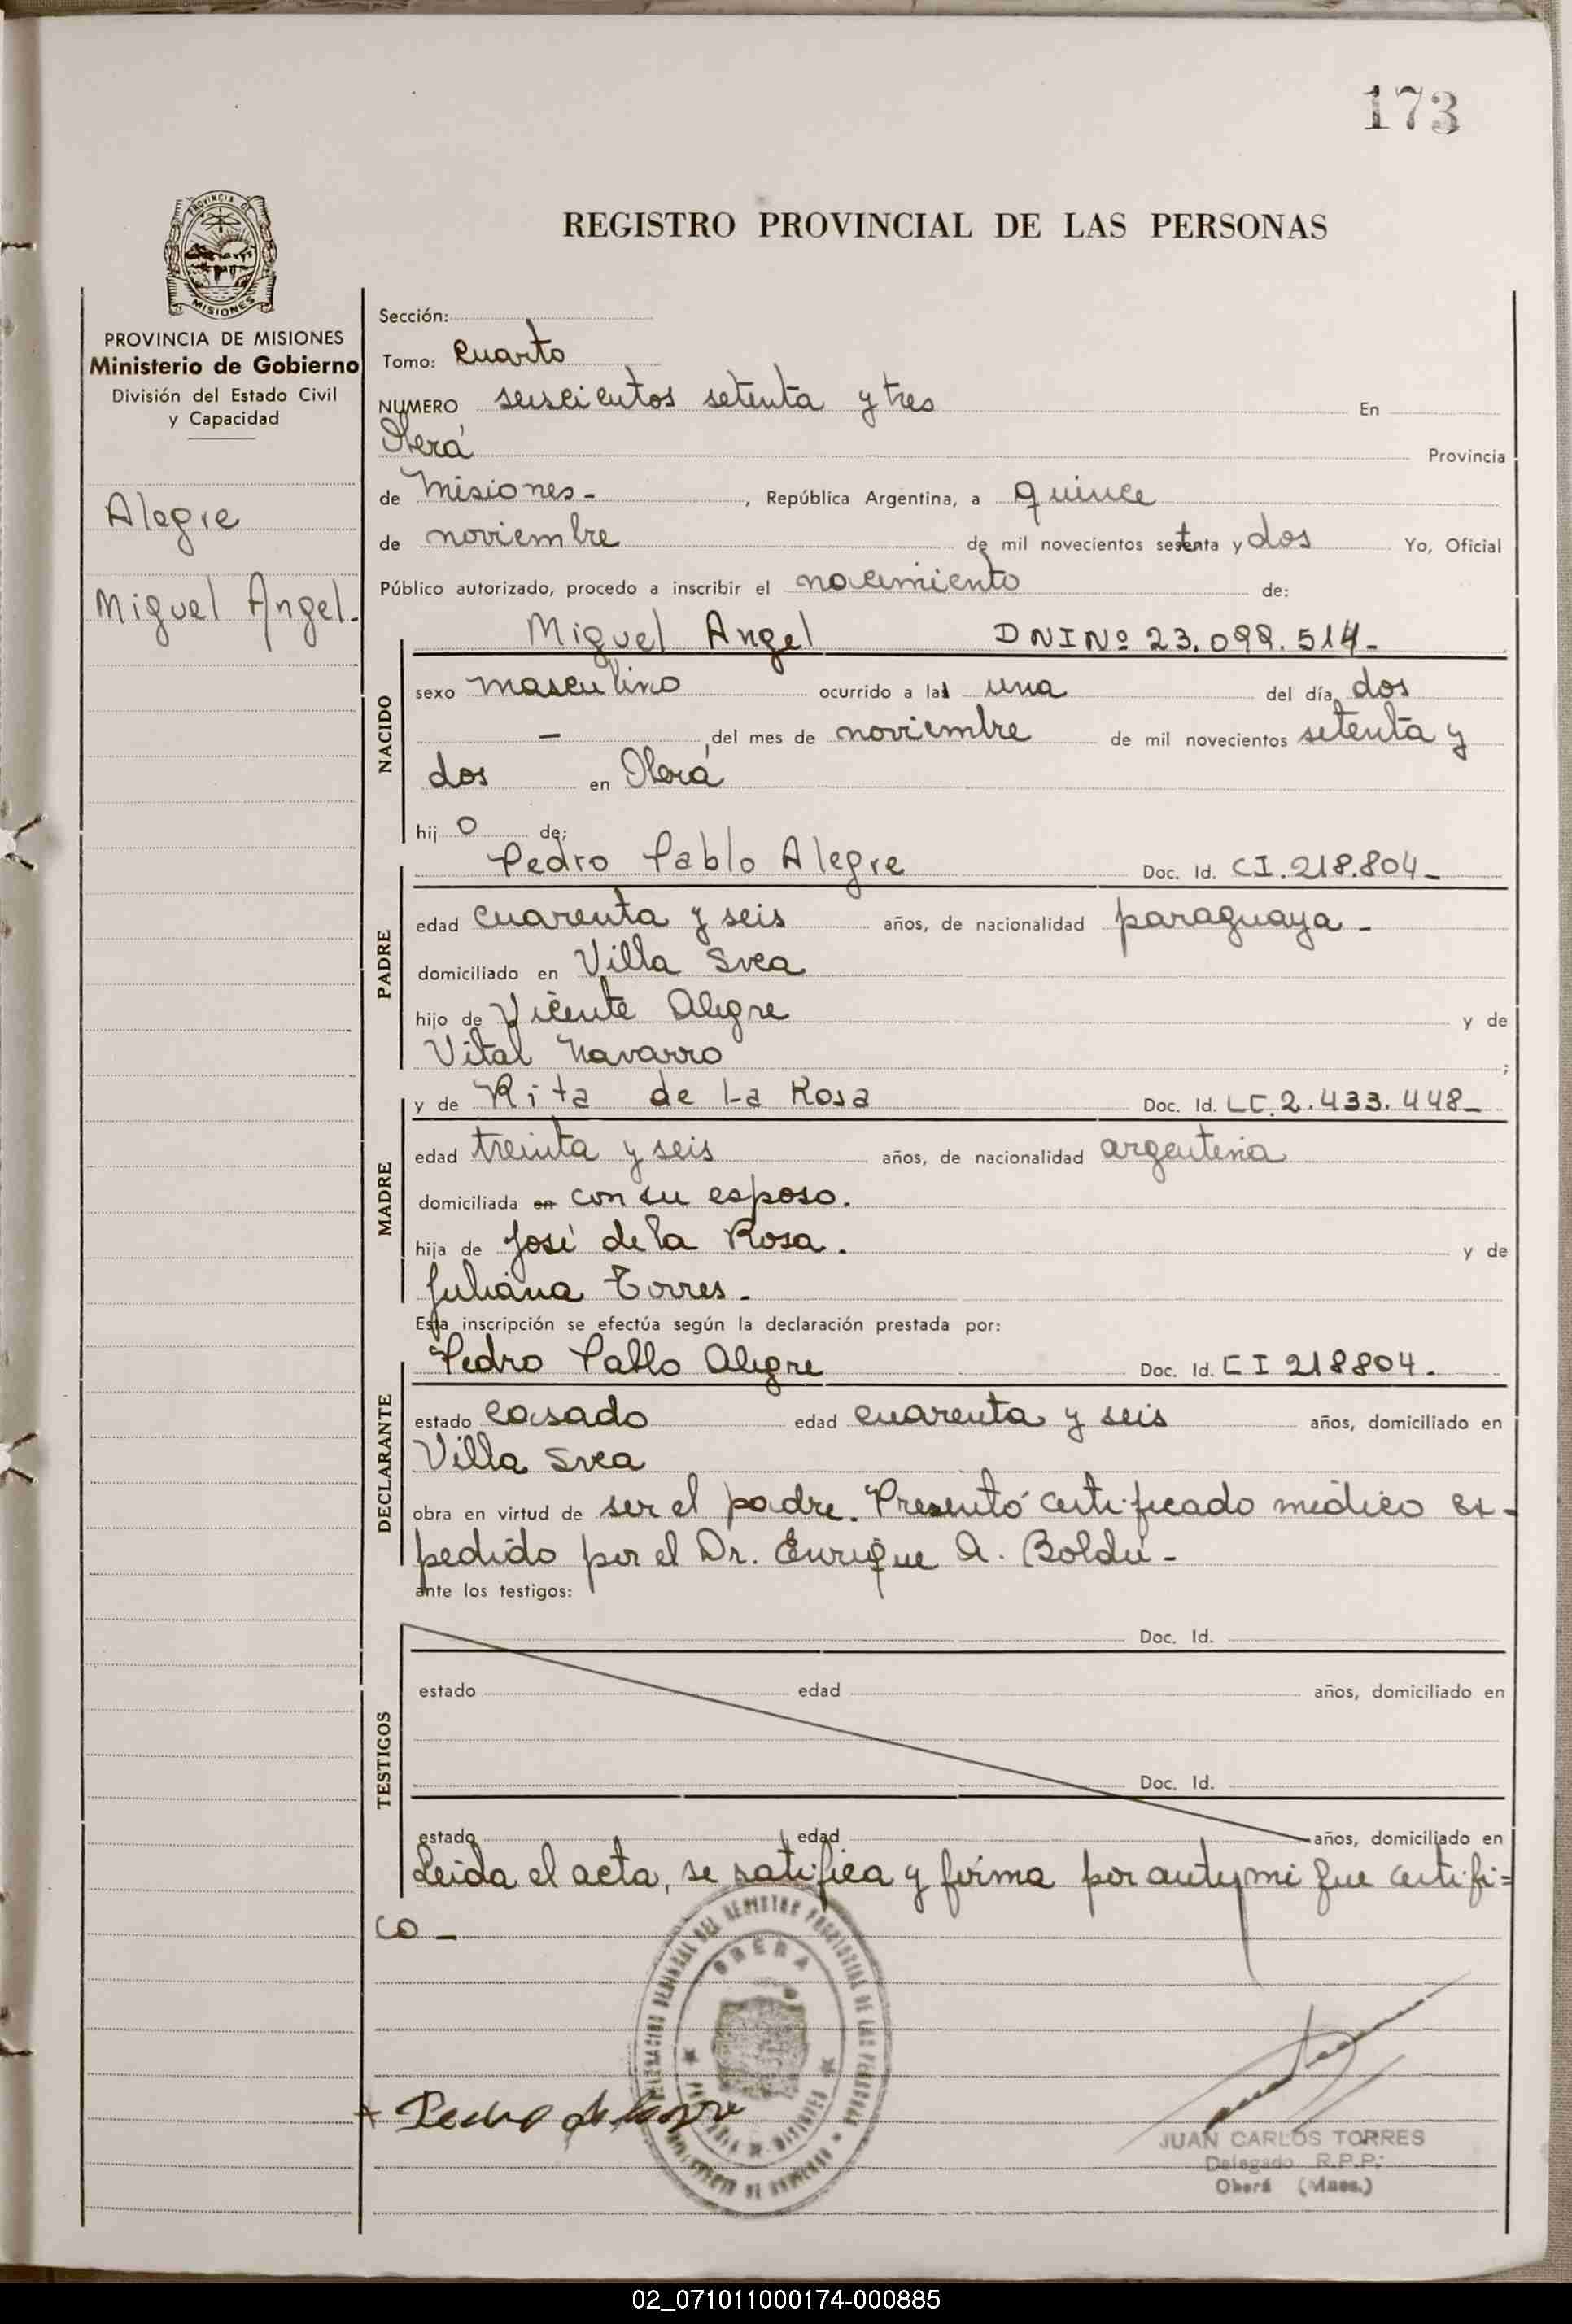 173
PROVINCIA DE
MISIONES
REGISTRO PROVINCIAL DE LAS PERSONAS
PROVINCIA DE MISIONES
Ministerio de Gobierno
División del Estado Civil
y Capacidad
Alegre
Miguel Angel.
Sección:
Tomo: cuarto
NUMERO seiscientos setenta y tres En
Oberá Provincia
de Misiones- , República Argentina, a quince
de noviembre de mil novecientos setenta y dos Yo, Oficial
Público autorizado, procedo a inscribir el nacimiento de:
NACIDO
Miguel Angel DNI Nº 23.098.514-
sexo masculino ocurrido a la una del día dos
- del mes de noviembre de mil novecientos setenta y
dos en Oberá
hij o de:
PADRE
Pedro Pablo Alegre Doc. Id. CI.218.804-
edad cuarenta y seis años, de nacionalidad paraguaya-
domiciliado en Villa Svea
hijo de Vicente Alegre y de
Vital Navarro ;
MADRE
y de Rita de La Rosa Doc. Id. LC.2.433.448-
edad treinta y seis años, de nacionalidad argentina
domiciliada en con su esposo.
hija de José de la Rosa. y de
Juliana Torres-
Esta inscripción se efectúa según la declaración prestada por:
DECLARANTE
Pedro Pablo Alegre Doc. Id. CI 218804.
estado casado edad cuarenta y seis años, domiciliado en
Villa Svea
obra en virtud de ser el padre. Presentó certificado médico ex-
pedido por el Dr. Enrique A. Boldú-
ante los testigos:
TESTIGOS
Doc. Id.
estado edad años, domiciliado en
Doc. Id.
estado edad años, domiciliado en
Leida el acta, se ratifica y firma por ante mi que certifi=
co-
DELEGACION GENERAL DEL REGISTRO PROVINCIAL DE LAS PERSONAS
OBERA
PROVINCIA DE MISIONES
MINISTERIO DE GOBIERNO
Pedro Alegre
JUAN CARLOS TORRES
Delegado R.P.P.
Oberá (Mnes.)
02_071011000174-000885